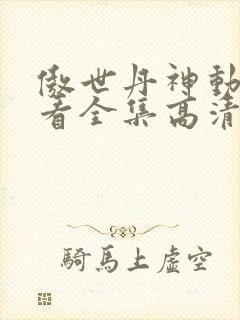 傲世丹神動
看全集高清
騎馬上虛空